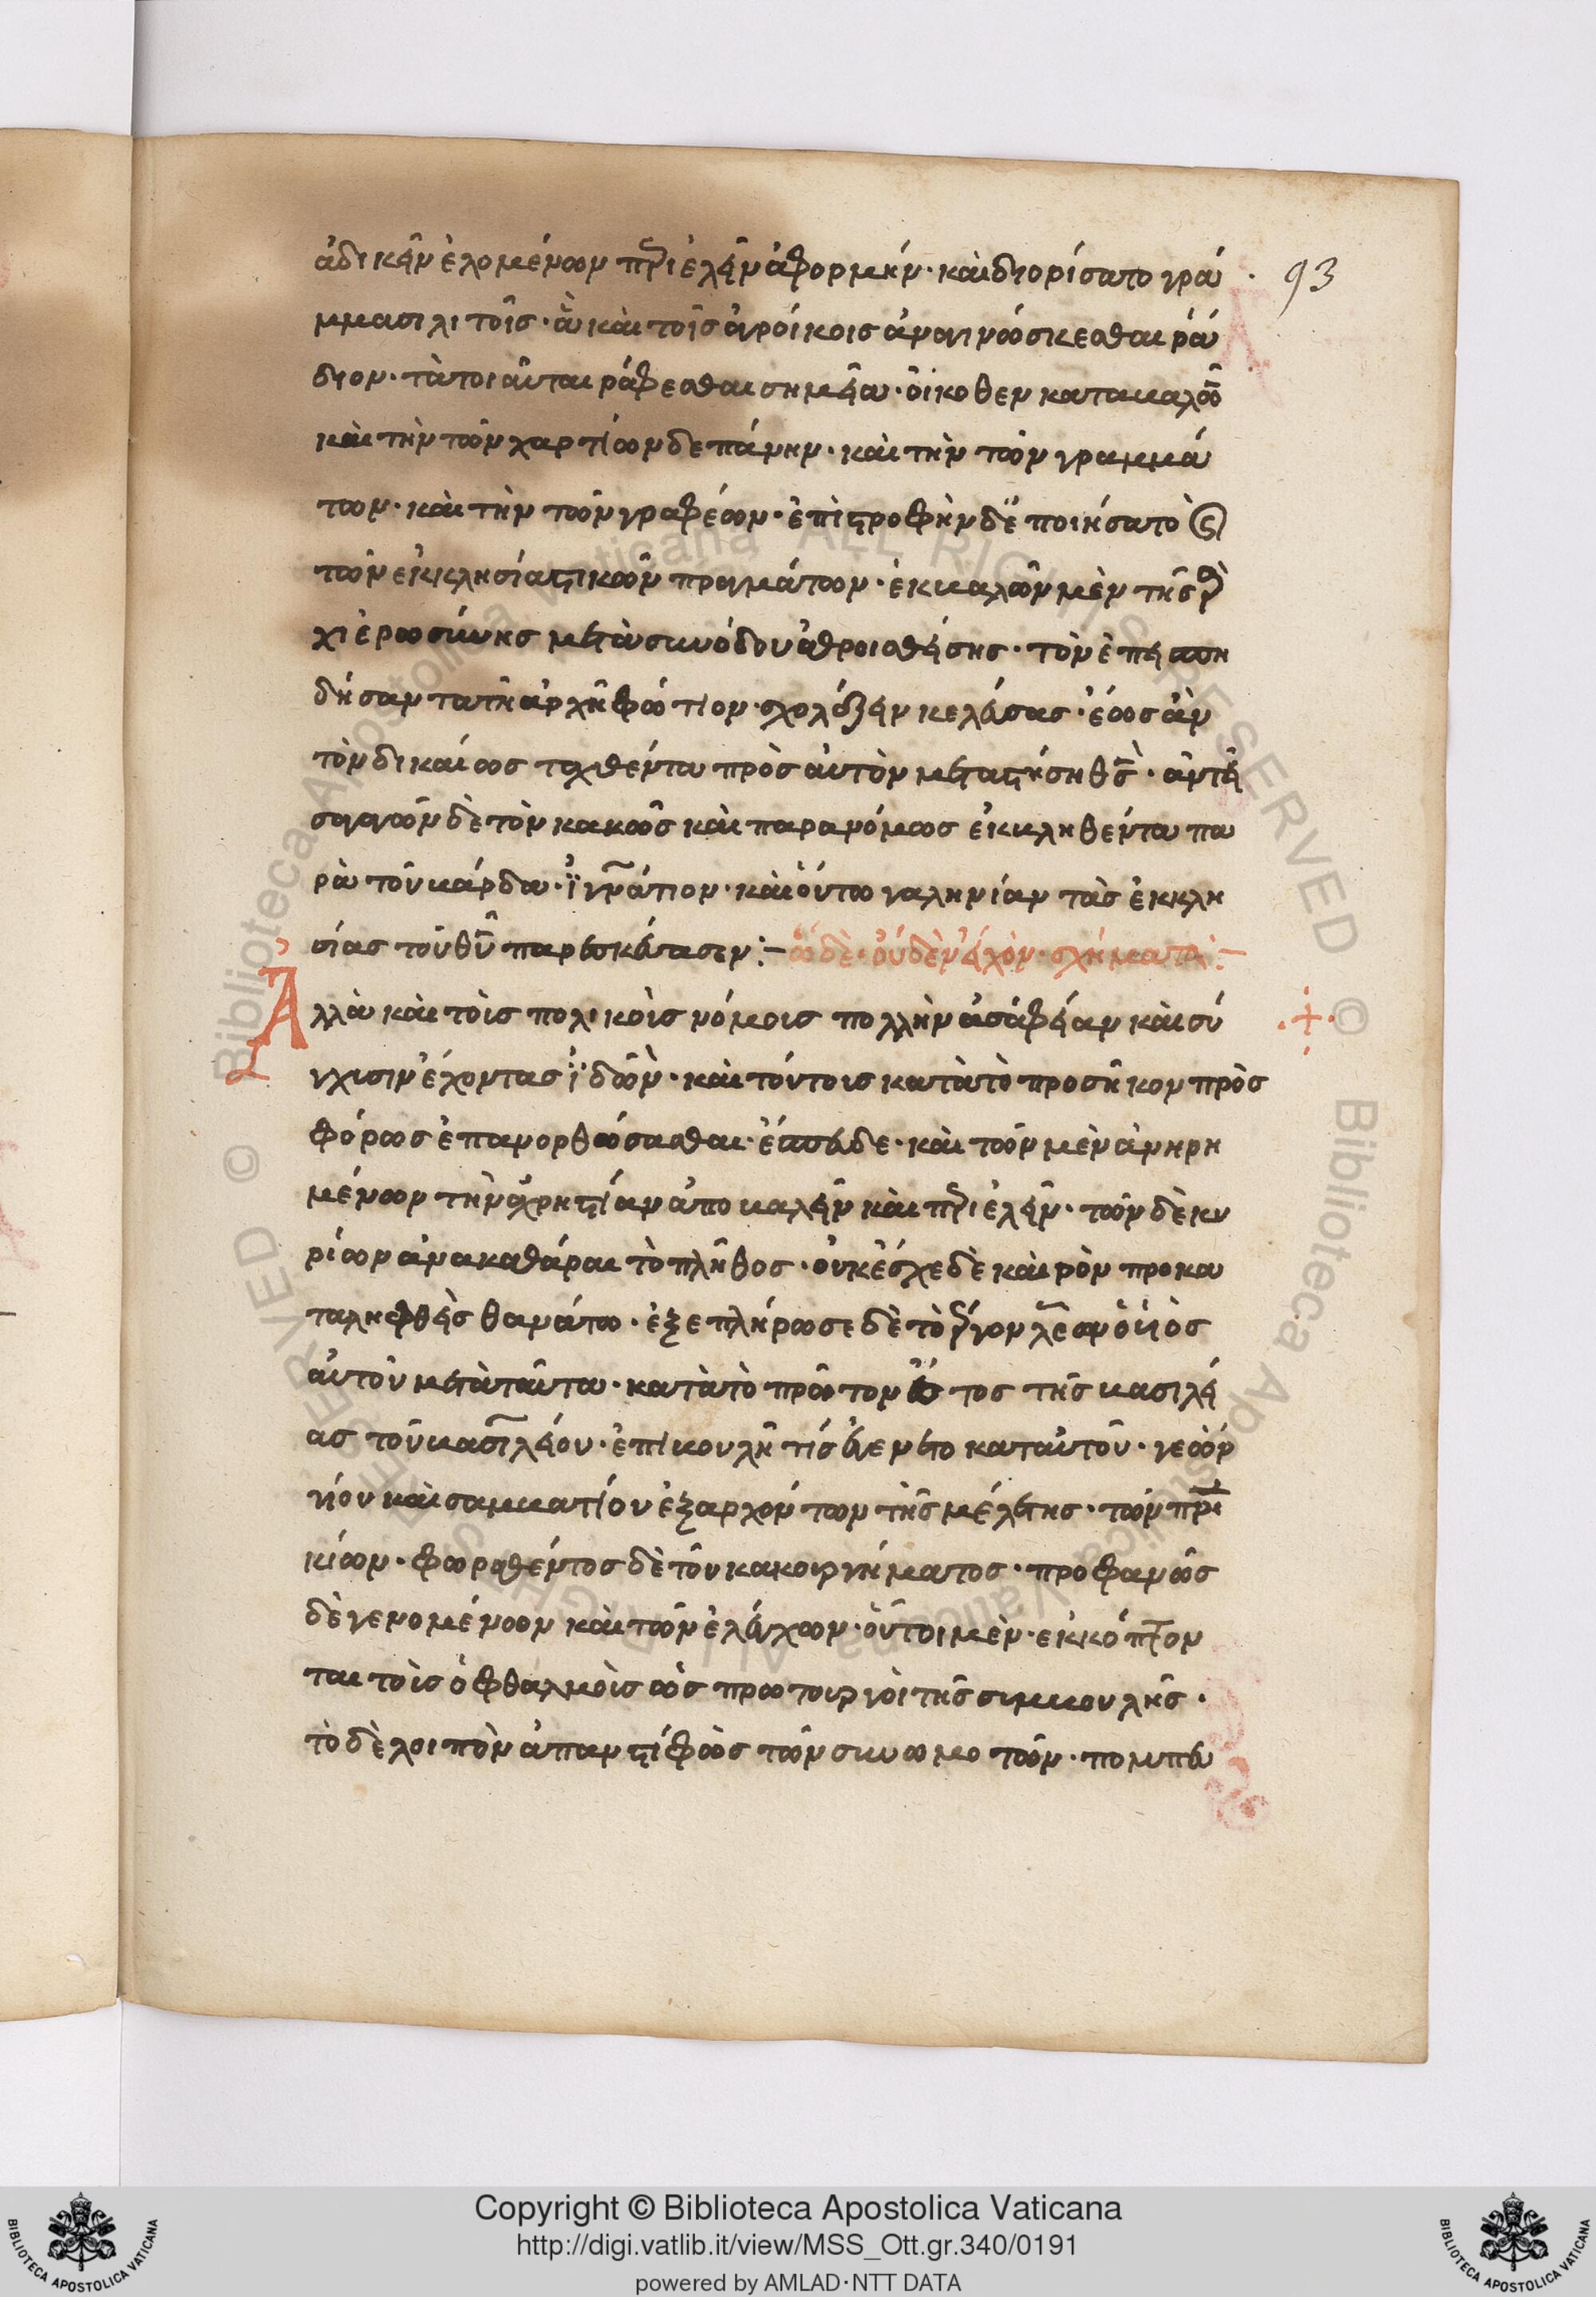 ἀδικεῖν ἑλομένων περιελεῖν ἀφορμήν· καὶ διορίσατο γρά
93
μμασι λιτοῖς· ἃ καὶ τοῖς ἀγροίκοις ἀναγινώσκεσθαι ῥά
διον· τὰ τοιαῦτα γράφεσθαι σημεῖα· οἴκοθεν καταβαλὼν
καὶ τὴν τῶν χαρτίων δεπάνην· καὶ τὴν τῶν γραμμά
των· καὶ τὴν τῶν γραφέων· ἐπιστροφὴν δὲ ποιήσατο καὶ
τῶν ἐκκλησιαστικῶν πραγμάτων· ἐκβαλὼν μὲν τῆς ἀρ
χιερωσύνης μετὰ συνόδου ἀθροισθείσης· τὸν ἐπειση
δήσαντα τῇ ἀρχῇ φώτιον· σχολάζειν κελεύσας· ἕως ἂν
τὸν δικαίως ταχθέντα πρὸς αὐτὸν μεταστήσῃ θς· ἀντει
σαγαγὼν δὲ τὸν κακῶς καὶ παρανόμως ἐκβληθέντα πα
ρὰ τοῦ βάρδα· ϊγνάτιον· καὶ οὕτω γαληνίαν τὰς ἐκκλη
σίας τοῦ θυ παρεσκεύασεν:– ὧδε· οὐδὲν εἶχὸν· σχήματα:–
Ἀλλὰ καὶ τοῖς πολικοῖς νόμοις πολλὴν ἀσάφειαν καὶ σύ
γχισιν ἔχοντας ϊδὼν· καὶ τούτοις κατὰ τὸ προσῆκον πρὸς
φόρως ἐπανορθώσασθαι· ἔσπευδε· καὶ τῶν μὲν ἀνηρη
μένων τὴν ἀχρηστίαν ἀποβαλεῖν καὶ περιελεῖν· τῶν δὲ κυ
ρίων ἀνακαθάραι τὸ πλῆθος· οὐκ ἔσχε δὲ καιρὸν προκα
ταληφθεὶς θανάτω· ἐξεπλήρωσε δὲ τὸ ἔργον λέων ὁ υἱὸς
αὐτοῦ μετὰ ταῦτα· κατὰ τὸ πρῶτον ἔτος τῆς βασιλεί
ας τοῦ βασιλείου· ἐπιβουλή τίς ἐγένετο κατ αὐτοῦ· γεωρ
γίου καὶ συμβατίου ἐξαρχόντων τῆς μελέτης· τῶν πατρι
κίων· φωραθέντος δὲ τοῦ κακουργήματος· προφανῶς
δὲ γενομένων καὶ τῶν ἐλέγχων· οὗτοι μὲν· ἐκκόπτον
ται τοῖς ὀφθαλμοῖς ὡς πρωτουργοὶ τῆς συμβουλῆς·
τὸ δὲ λοιπὸν ἅπαν στίφος τῶν συνωμοτῶν· πομπεύ
Copyright © Biblioteca Apostolica Vaticana
http://digi.vatlib.it/view/MSS_Ott.gr.340/0191
powered by AMLAD·NTT DATA